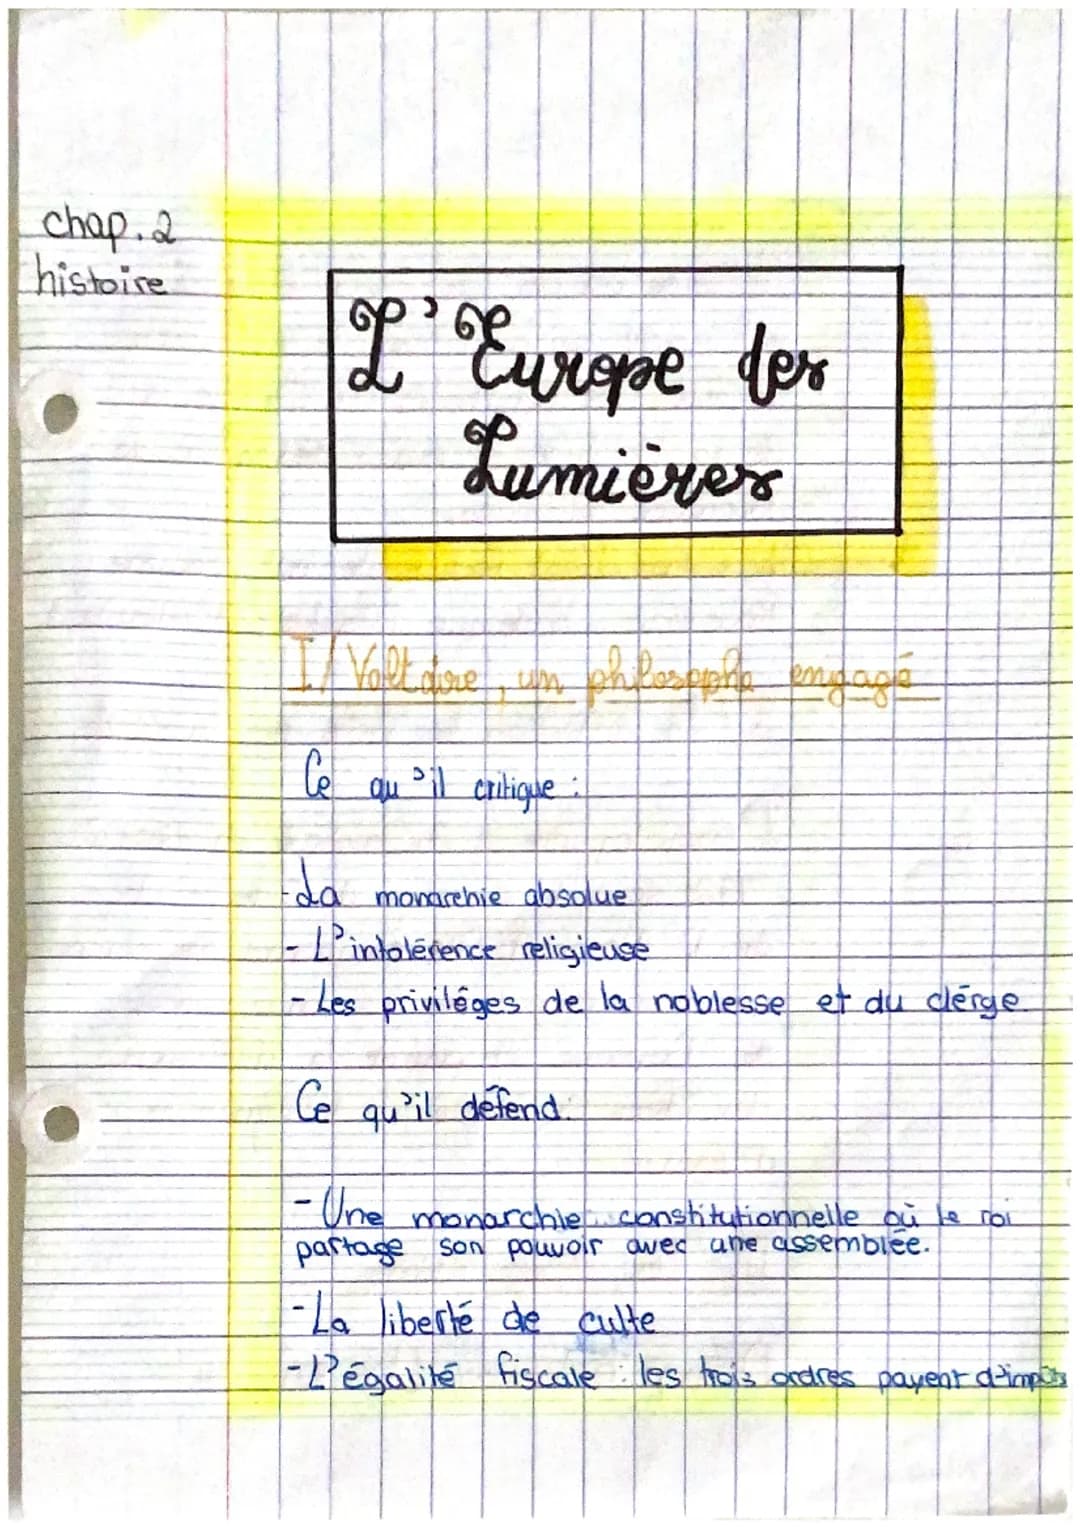 chap. 2
histoire
L'Europe des
Lumières
I/ Voltaire, un philosophe engagé
Ce qu'il critique :
- La monarchie absolue
- L'intolérence religieuse
- Les priviléges de la noblesse et du clérge
Ce qu'il défend:
- Une monarchie constitutionnelle où le roi
partage son pouvoir avec une assemblée.
- La liberté de culte
- L'égalité fiscale : les trois ordres payent d'impôts